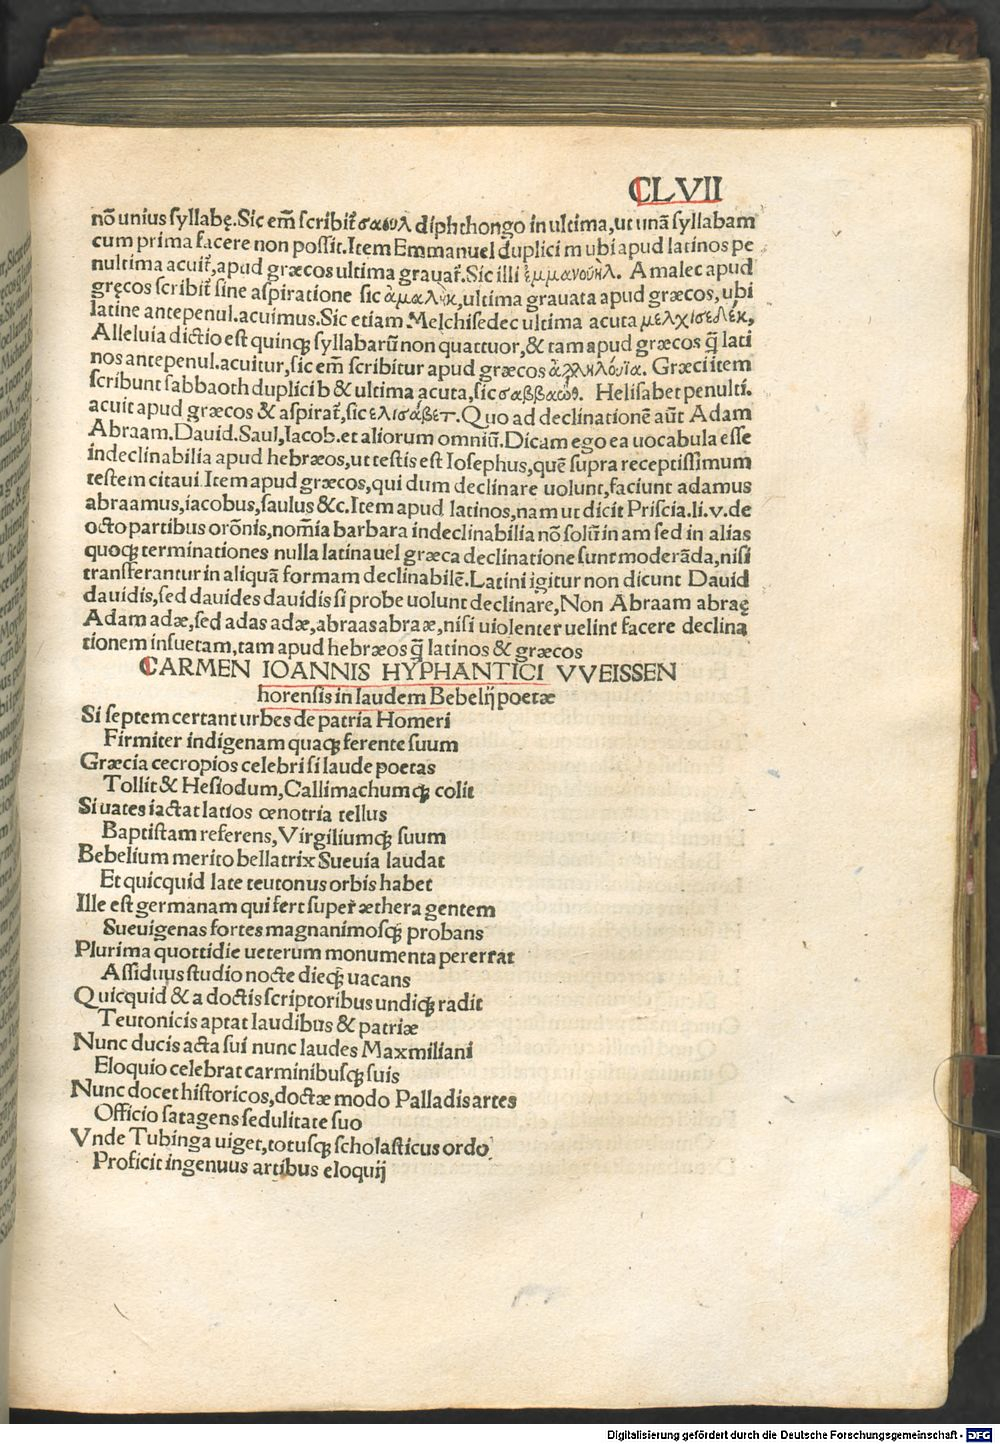 CLVII
nō unius syllabę. Sic em̄ scribit̃ σαουλ diphthongo in ultima, ut unā syllabam
cum prima facere non possit. Item Emmanuel duplici m ubi apud latinos pe
nultima acuit̃, apud græcos ultima grauat̃. Sic illi ἐμμανουὴλ. Amalec apud
gręcos scribit̃ sine aspiratione sic ἀμαλὴκ, ultima grauata apud græcos, ubi
latine antepenul. acuimus. Sic etiam Melchisedec ultima acuta μελχισεδέκ,
Alleluia dictio est quinq; syllabarū non quattuor, & tam apud græcos q̄ lati
nos antepenul. acuitur, sic em̄ scribitur apud græcos ἀλληλόυϊα. Græci item
scribunt sabbaoth duplici b & ultima acuta, sic σαββαώθ. Helisabet penulti.
acuit apud græcos & aspirat̃, sic ελισάβετ. Quo ad declinationē aūt Adam
Abraam. Dauid. Saul, Iacob. et aliorum omniū. Dicam ego ea uocabula esse
indeclinabilia apud hebræos, ut testis est Iosephus, quē supra receptissimum
testem citaui. Item apud græcos, qui dum declinare uolunt, faciunt adamus
abraamus, iacobus, saulus &c. Item apud latinos, nam ut dicit Priscia. li. v. de
octo partibus orōnis, nom̄ia barbara indeclinabilia nō solū in am sed in alias
quoq; terminationes nulla latina uel græca declinatione sunt moderāda, nisi
transferantur in aliquā formam declinabilē. Latini igitur non dicunt Dauid
dauidis, sed dauides dauidis si probe uolunt declinare, Non Abraam abraę
Adam adæ, sed adas adæ, abraas abraæ, nisi uiolenter uelint facere declina
tionem insuetam, tam apud hebræos q̄ latinos & græcos
CARMEN IOANNIS HYPHANTICI VVEISSEN
horensis in laudem Bebelij poetæ
Si septem certant urbes de patria Homeri
Firmiter indigenam quaq; ferente suum
Græcia cecropios celebri si laude poetas
Tollit & Hesiodum, Callimachumq; colit
Si uates iactat latios œnotria tellus
Baptistam referens, Virgiliumq; suum
Bebelium merito bellatrix Sueuia laudat
Et quicquid late teutonus orbis habet
Ille est germanam qui fert super æthera gentem
Sueuigenas fortes magnanimosq; probans
Plurima quottidie ueterum monumenta pererrat
Assiduus studio nocte dieq; uacans
Quicquid & a doctis scriptoribus undiq; radit
Teutonicis aptat laudibus & patriæ
Nunc ducis acta sui nunc laudes Maxmiliani
Eloquio celebrat carminibusq; suis
Nunc docet historicos, doctæ modo Palladis artes
Officio satagens sedulitate suo
Vnde Tubinga uiget, totusq; scholasticus ordo
Proficit ingenuus artibus eloquij
Digitalisierung gefördert durch die Deutsche Forschungsgemeinschaft - DFG